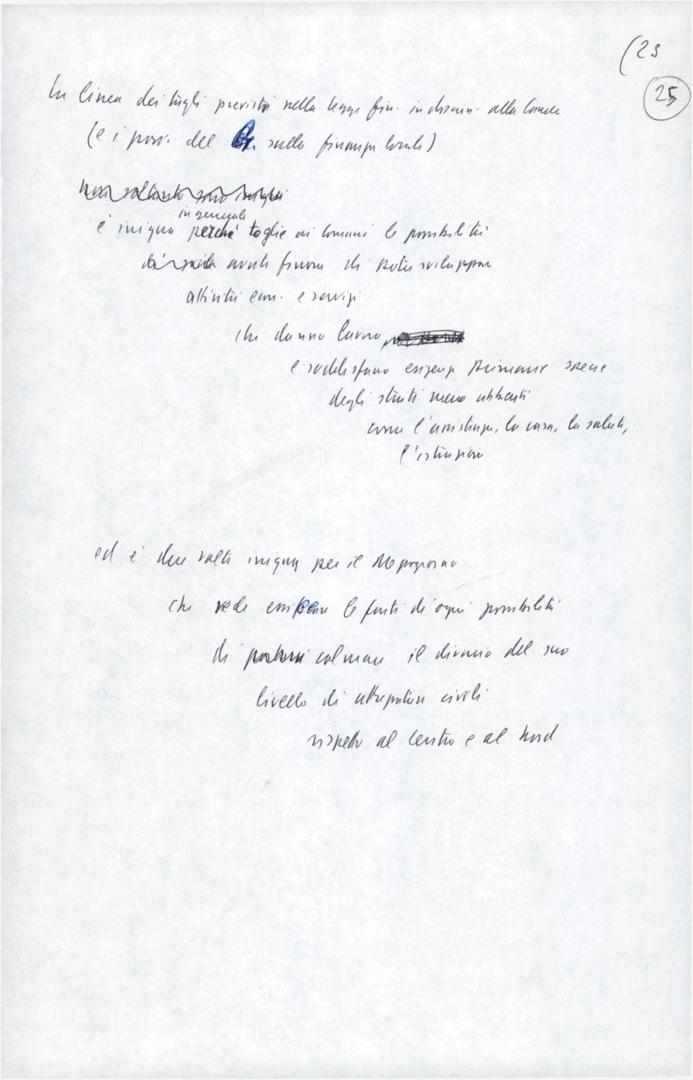 (25
25
La linea dei tagli previsti nella legge fin. in discuss. alla Camera
(e i provv. del sulla finanza locale)
non soltanto sono iniqui
in generale
è iniqua perché toglie ai comuni le possibilità
avuti finora di poter sviluppare
attività econ. e servizi
che danno lavoro
e soddisfano esigenze primarie specie
degli strati meno abbienti
come l'assistenza, la casa, la salute,
l'istruzione
ed è due volte iniqua per il Mezzogiorno
che vede le fonti di ogni possibilità
di colmare il divario del suo
livello di attrezzature civili
rispetto al Centro e al Nord